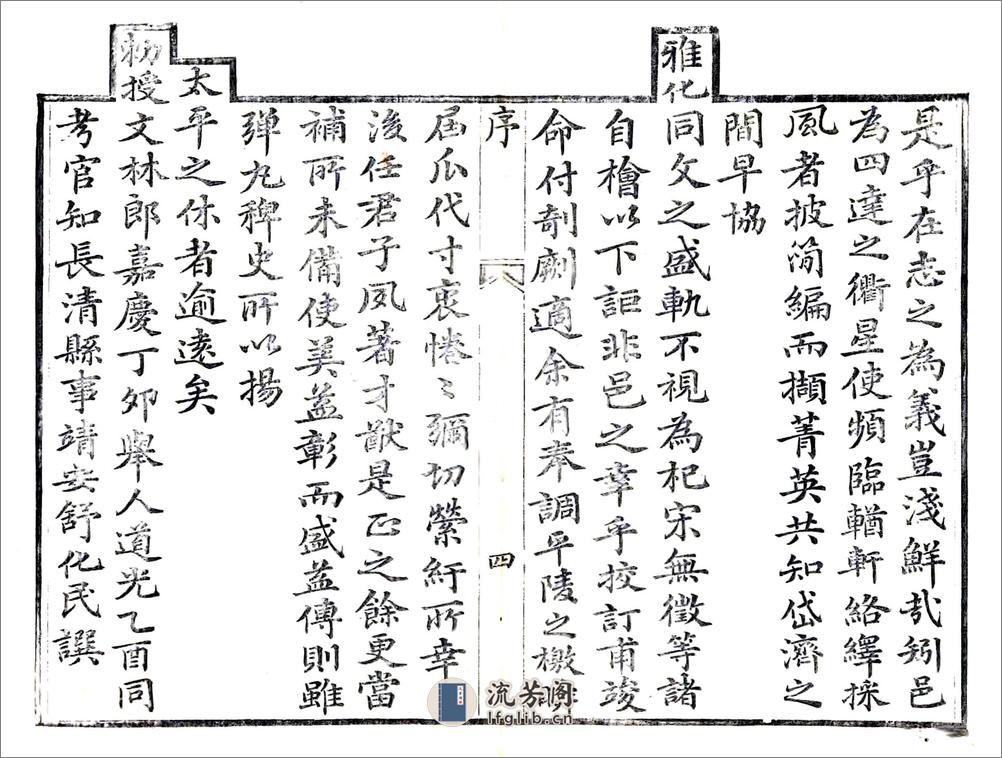 是乎在志之為義豈淺鮮哉矧邑
為四達之衢星使頻臨輶軒絡繹採
風者披簡編而擷菁英共知岱濟之
間早協
雅化同文之盛軌不視為杞宋無徵等諸
自檜以下詎非邑之幸乎挍訂甫竣
命付剞劂適余有奉調平陵之檄
序 四
屆瓜代寸衷惓〻彌切縈紆所幸
後任君子夙著才猷是正之餘更當
補所未備使美益彰而盛益傳則雖
彈丸稗史所以揚
太平之休者逾遠矣
勅授文林郎嘉慶丁卯舉人道光乙酉同
考官知長清縣事靖安舒化民譔
流芳阁
lfglib.cn